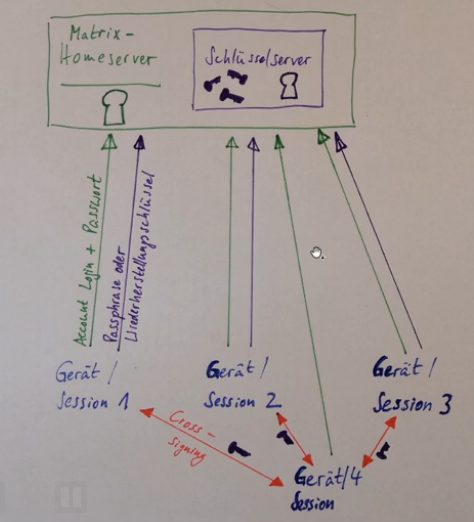 Matrix-
Homeserver
Schlüsselserver
Account Login + Passwort
Passphrase oder
Wiederherstellungsschlüssel
Gerät /
Session 1
Gerät /
Session 2
Gerät /
Session 3
Cross-
signing
Gerät/4
Session